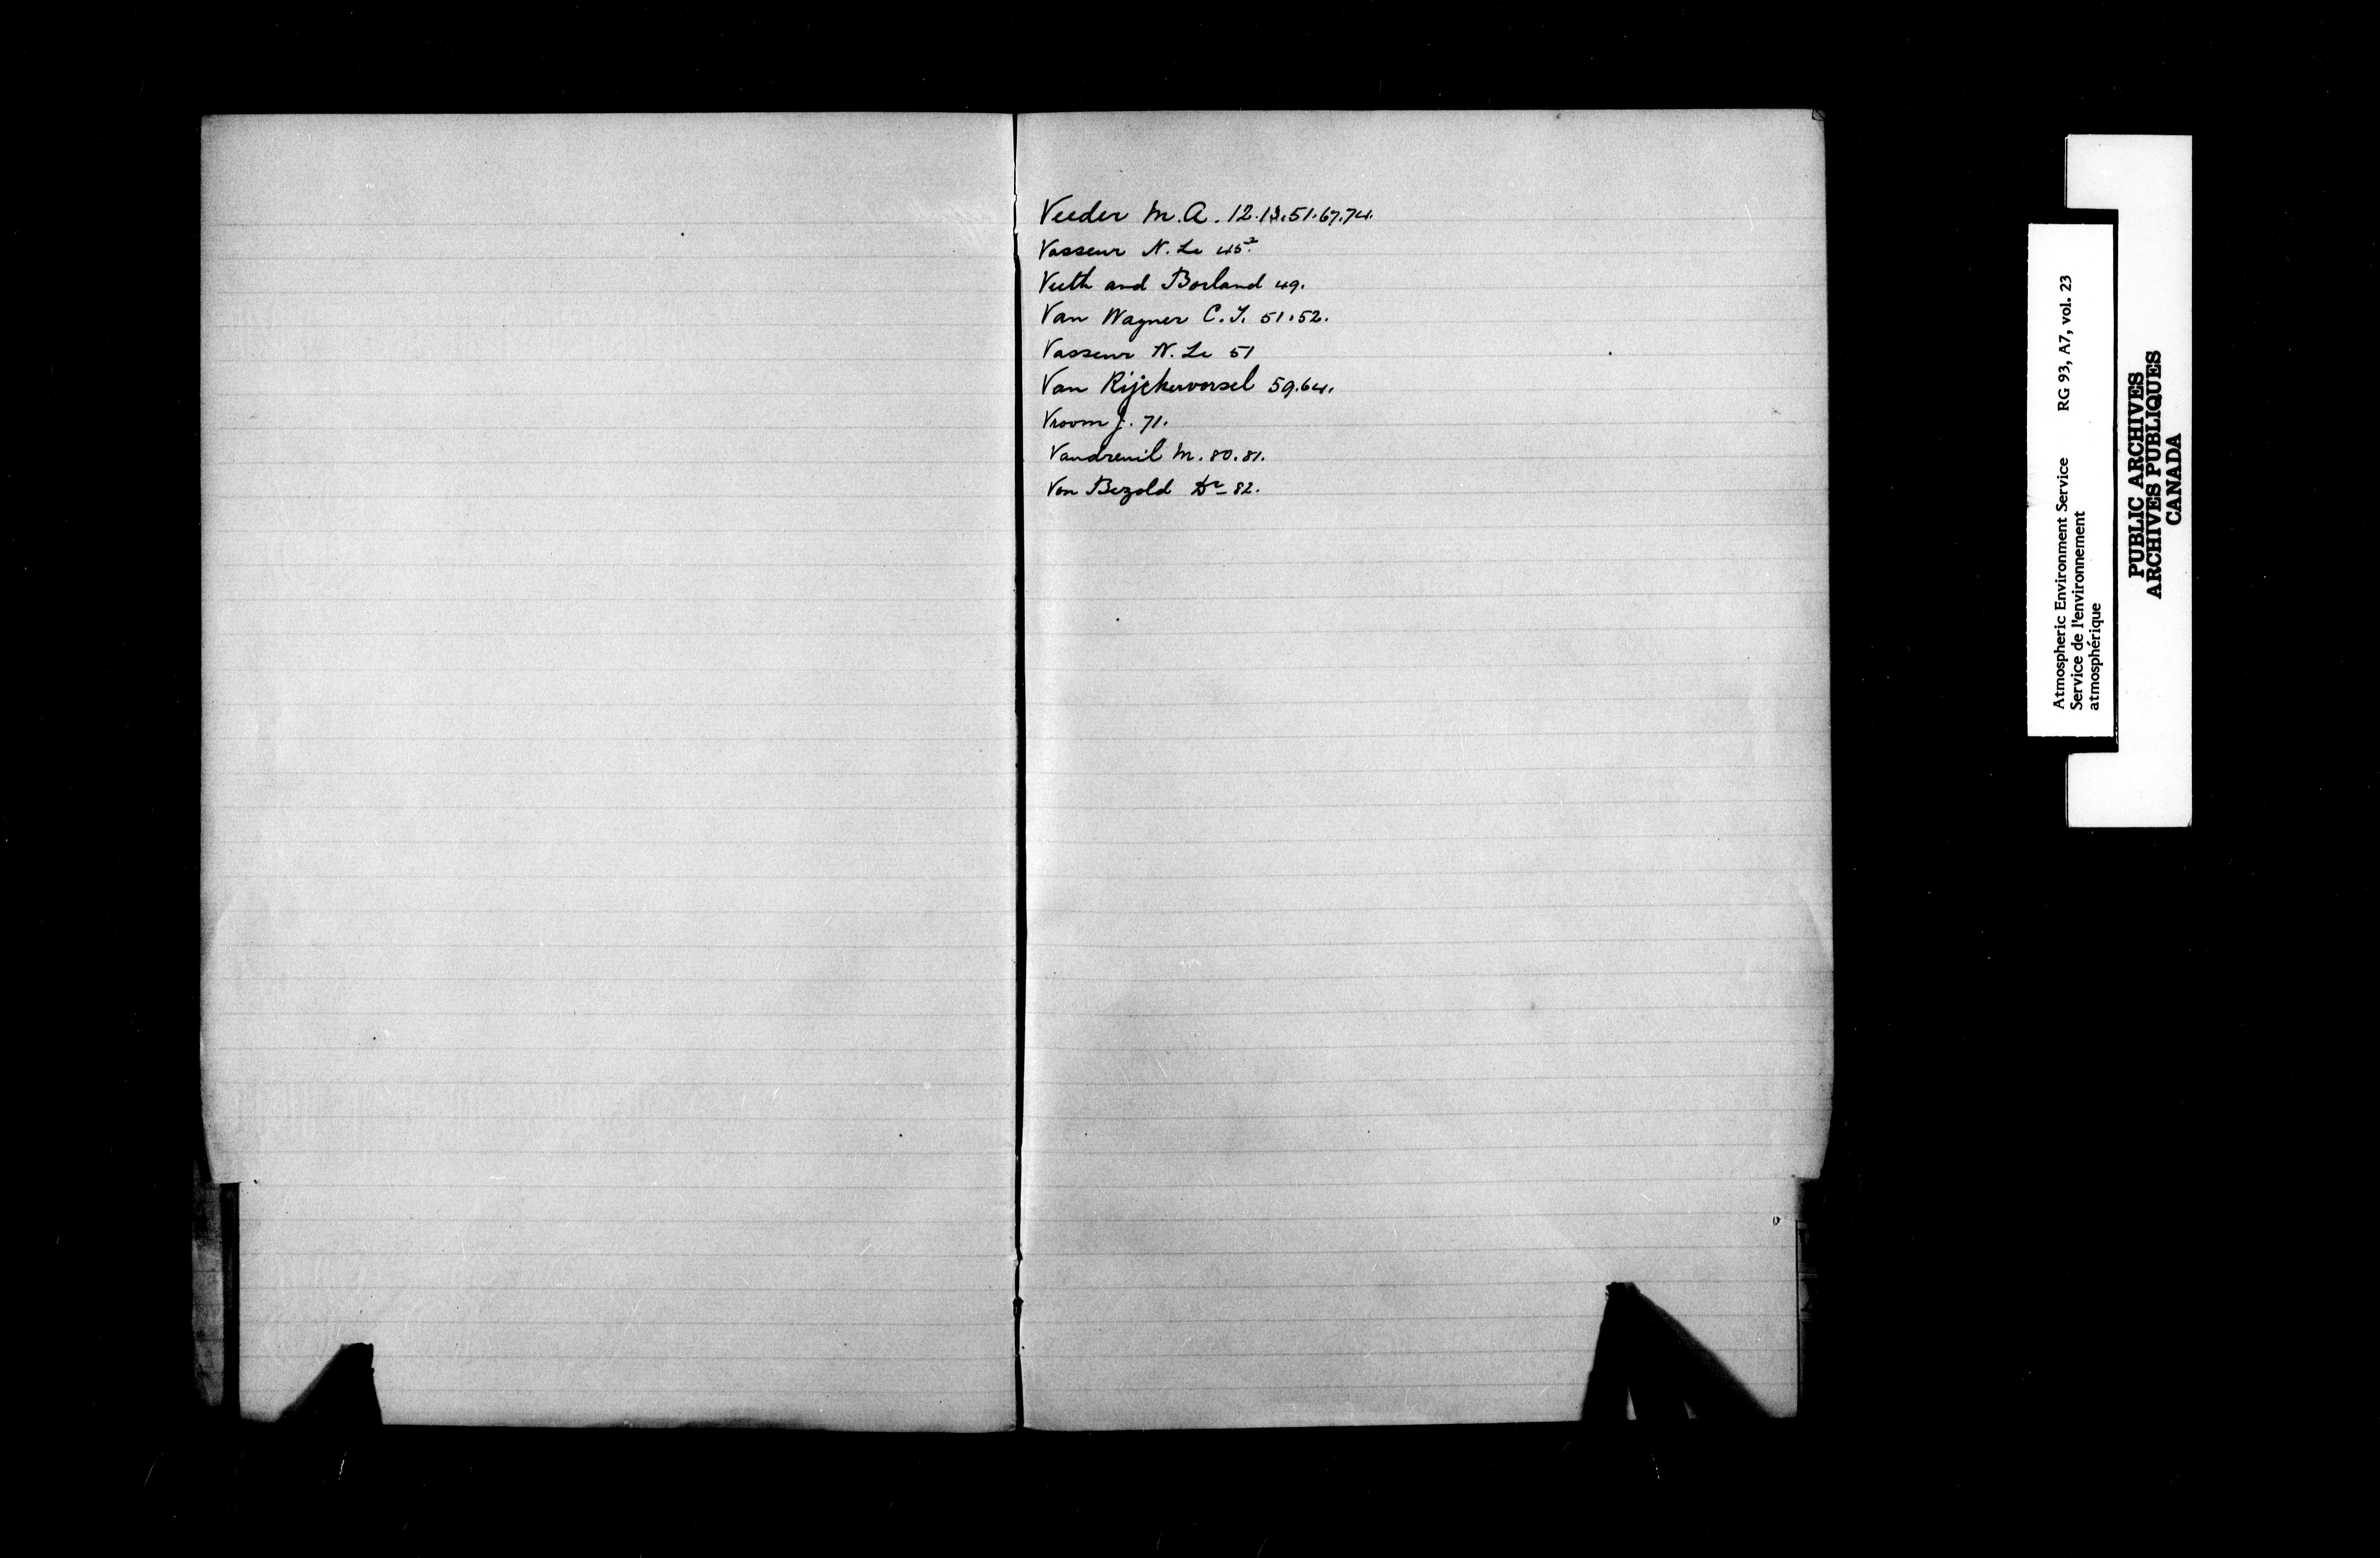 Veeder M.A. 12.13.51.67.74.
Vasseur N. Le 45².
Vieth and Borland 49.
Van Wagner C.I. 51.52.
Vasseur N. Le 51
Van Rijckevorsel 59.64.
Vroom J. 71.
Vaudreuil M. 80.81.
Von Bezold Dr 82.
Atmospheric Environment Service RG 93, A7, vol. 23
Service de l'environnement
atmosphérique
PUBLIC ARCHIVES
ARCHIVES PUBLIQUES
CANADA